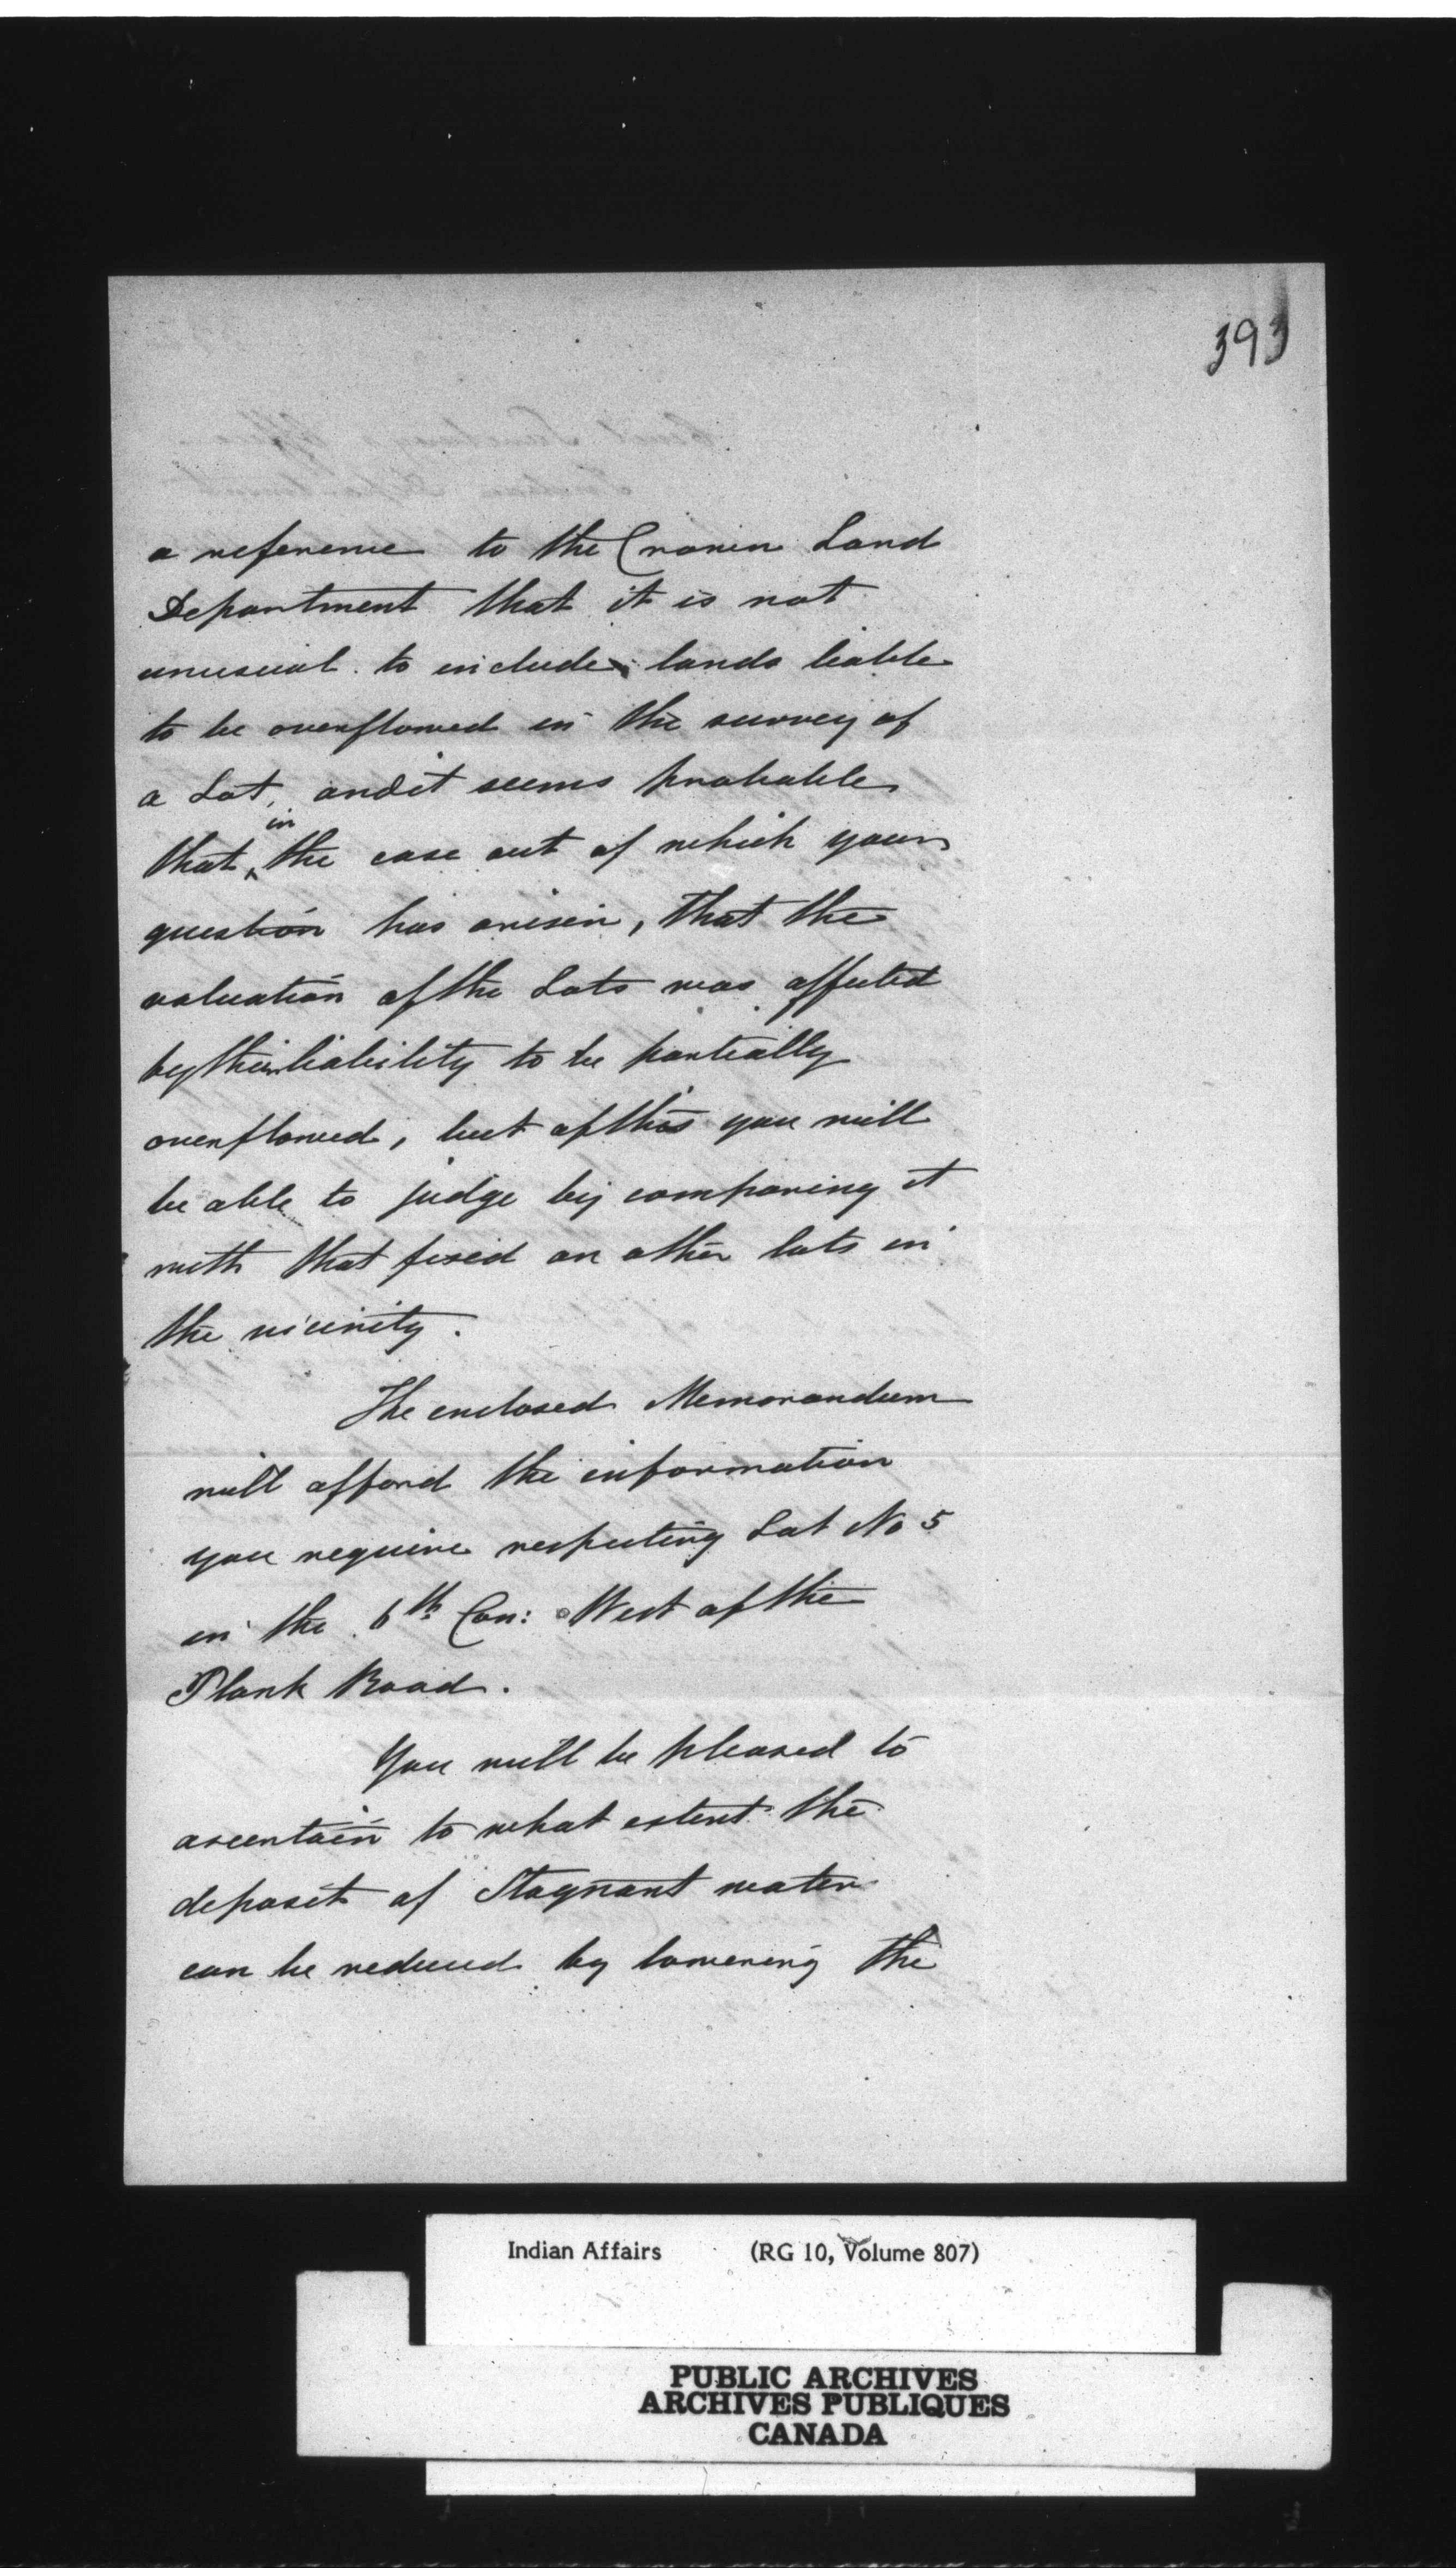 393
a reference to the Crown Land
Department that it is not
unusual to include lands liable
to be overflowed in the survey of
a Lot, and it seems probable
that in the case out of which your
question has arisen, that the
valuation of the Lots was affected
by their liability to be partially
overflowed, but of this you will
be able to judge by comparing it
with that fixed on other lots in
the vicinity.
The enclosed Memorandum
will afford the information
you require respecting Lot No 5
in the 6th Con: West of the
Plank Road.
You will be pleased to
ascertain to what extent the
deposit of Stagnant water
can be reduced by lowering the
Indian Affairs (RG 10, Volume 807)
PUBLIC ARCHIVES
ARCHIVES PUBLIQUES
CANADA